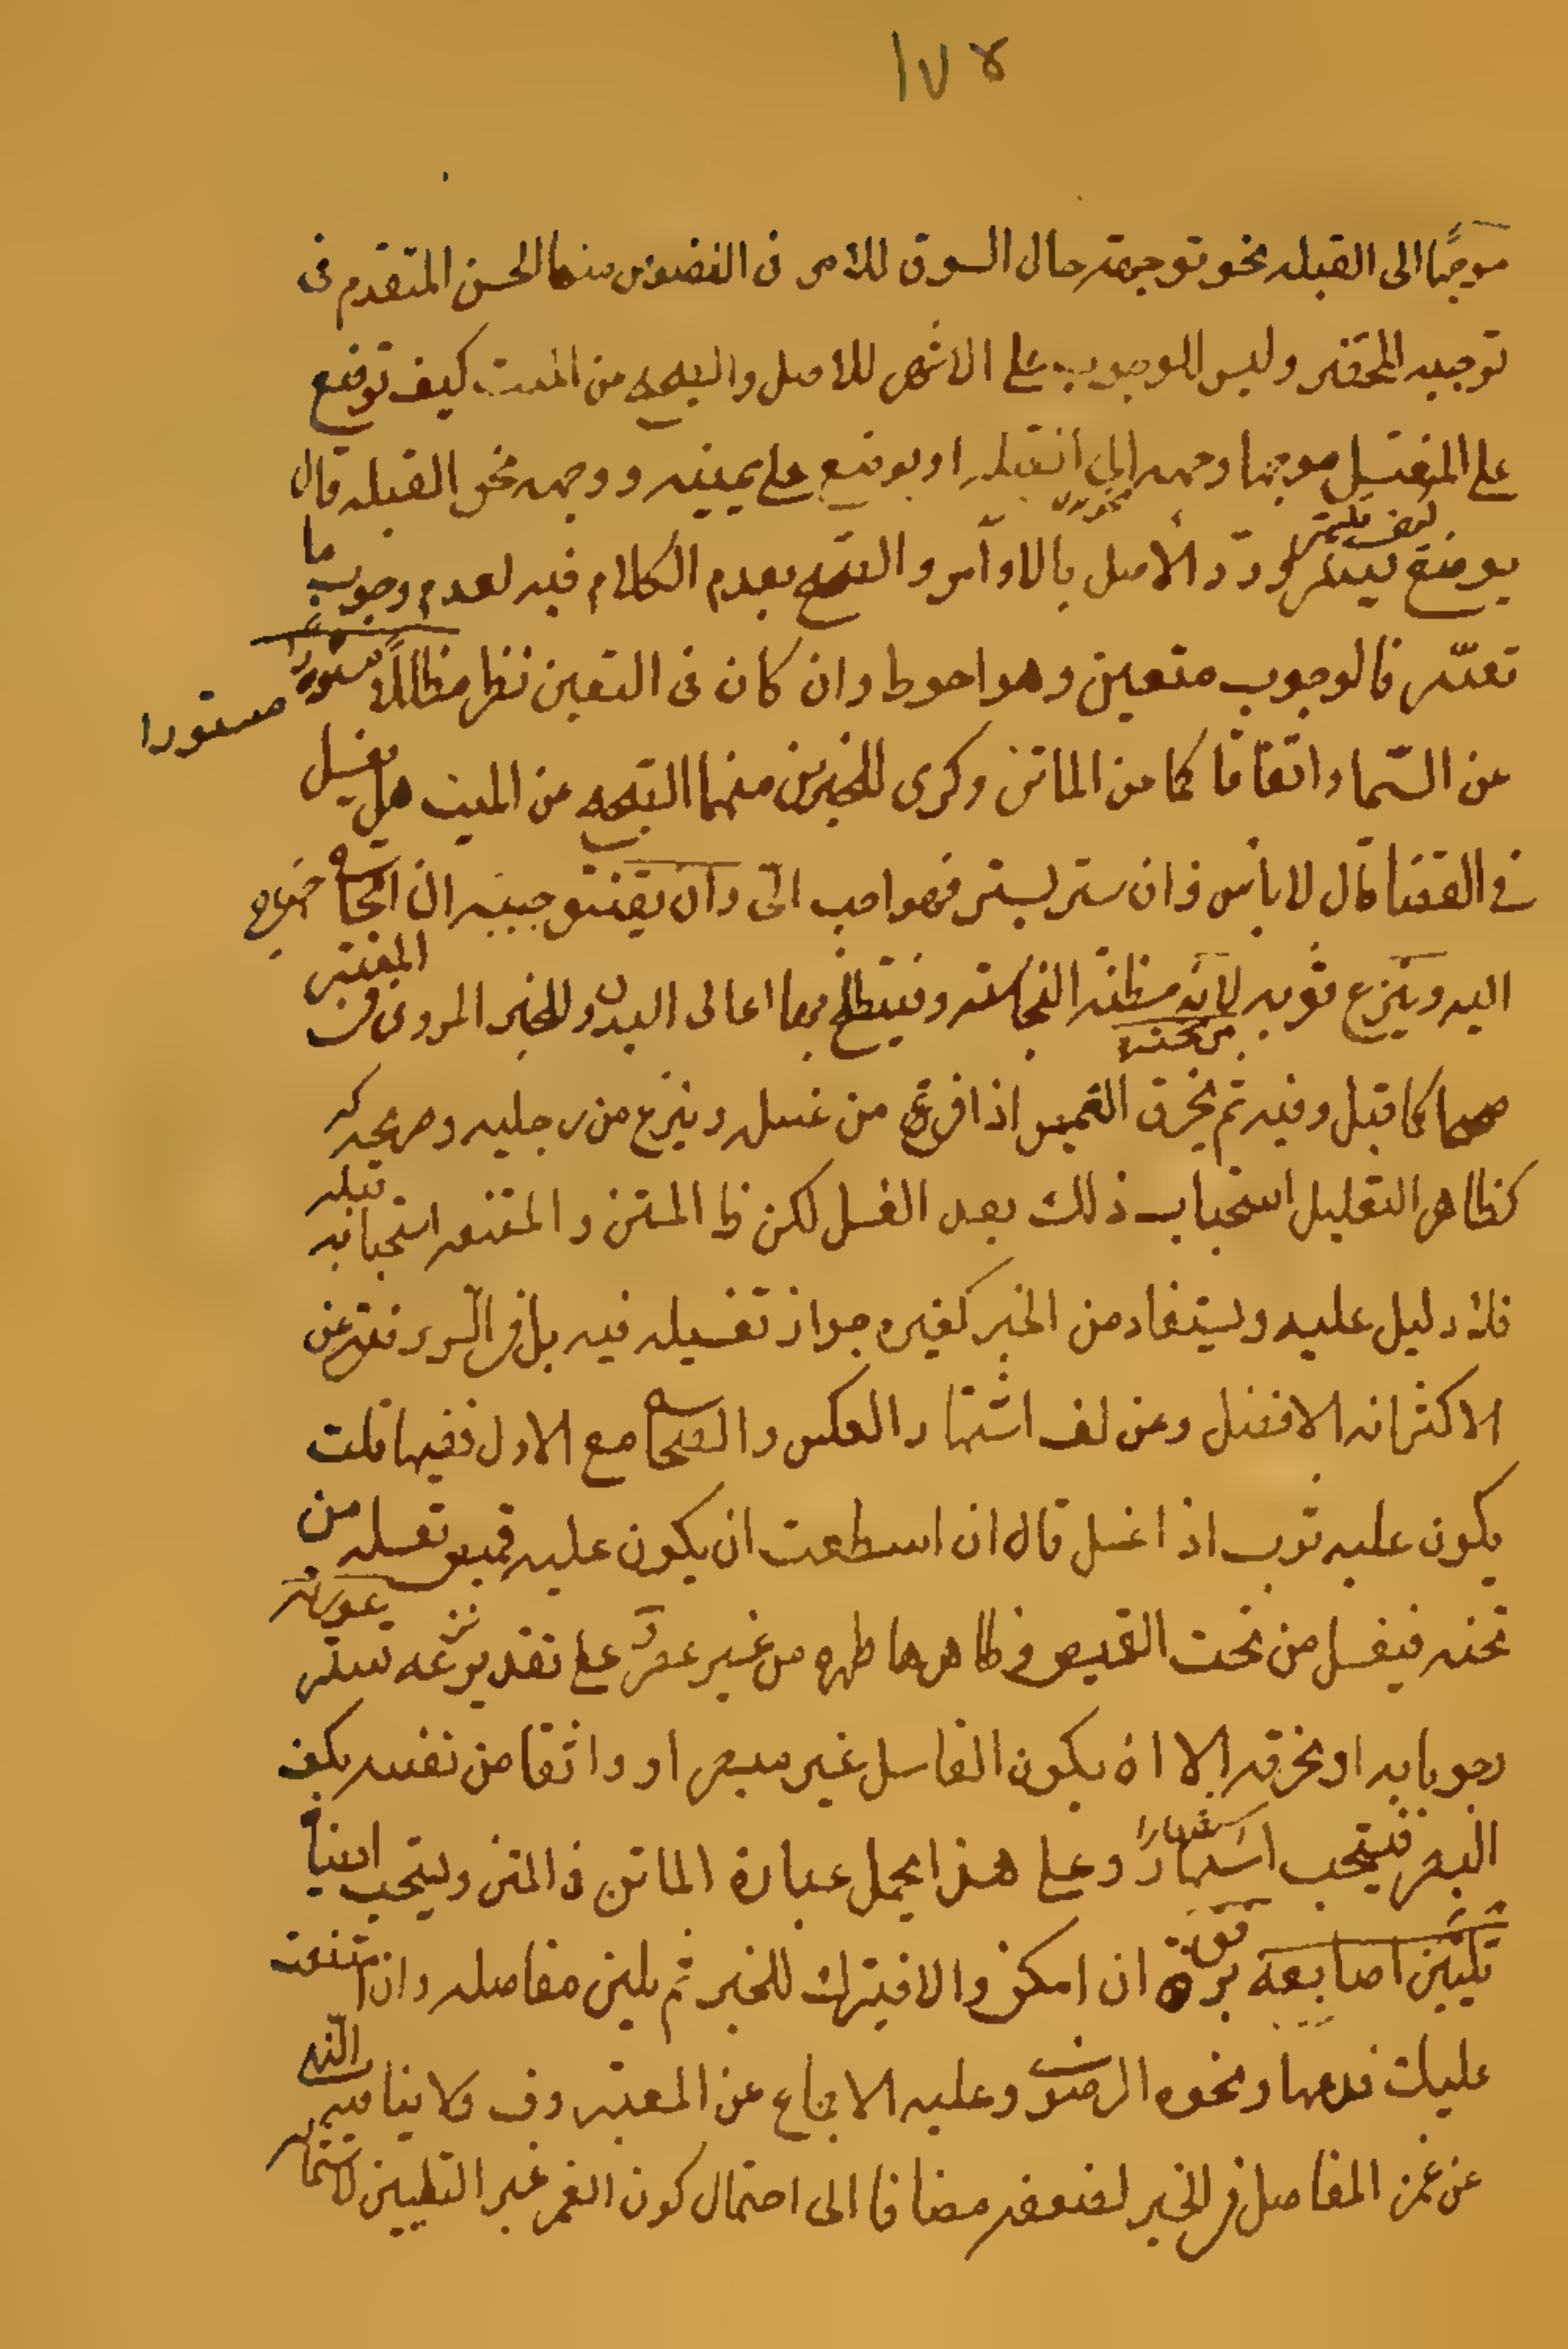 ١٧٤
موجّها الى القبله نحو توجهه حال السوق للامر فى النصوص منها الحسن المتقدم فى
توجيه المحتضر وليس للوجوب على الاشهر للاصل والصحيح عن الميت كيف توضع
على المغتسل موجها وجهه الى القبله او يوضع على يمينه و وجهه نحو القبله قال
يوضع كيف تيسر و ردّ الاصل بالاوامر و الصحيح بعدم الكلام فيه لعدم وجوب ما
تعسّر فالوجوب متعين وهو احوط وان كان فى التعين نظر مظلّلاً
مستورا
عن السّماء اتّفاقا كما عن الماتن وكرى للخبرين منهما الصحيح عن الميت هل يغسل
فى الفضا قال لا باس وان ستر بستر فهو احب الىّ وان يفتق جيبه ان احتاج خروج
اليه وينزع ثوبه من تحته لانه مظنه النجاسه فيتلطخ بها اعالى البدن وللخبر المروى فى المعتبر
كما قيل وفيه ثم يخرق القميص اذا فرغ من غسله وينزع من رجليه وصريحه
كظاهر التعليل استحباب ذلك بعد الغسل لكن ظ المتن و المقنعه استحبابه قبله
فلا دليل عليه ويستفاد من الخبر كغيره جواز تغسيله فيه بل فى السرائر فعن
الاكثر انه الافضل وعن لف اشتهار العكس والصحاح مع الاول ففيها قلت
يكون عليه ثوب اذا غسل قال ان استطعت ان يكون عليه قميص تغسله من
تحته فيغسل من تحت القميص و ظاهرها طهره من غير عصر و على تقدير نزعه ستر عورته
وجوبا به او بخرقه الا ان يكون الغاسل غير مبصر او واثقا من نفسه بكف
البصر فيستحب استظهارا و على هذا يحمل عبارة الماتن فى المتن ويستحب ايضا
تليين اصابعه برفق ان امكن والا فيترك للخبر ثم يلين مفاصله وان امتنعت
عليك فدعها ونحوه الرضوى وعليه الاجماع عن المعتبر وف ولا ينافيه النهى
عن غمز المفاصل فى الخبر لضعفه مضافا الى احتمال كون الغمز غير التليين لاشتماله